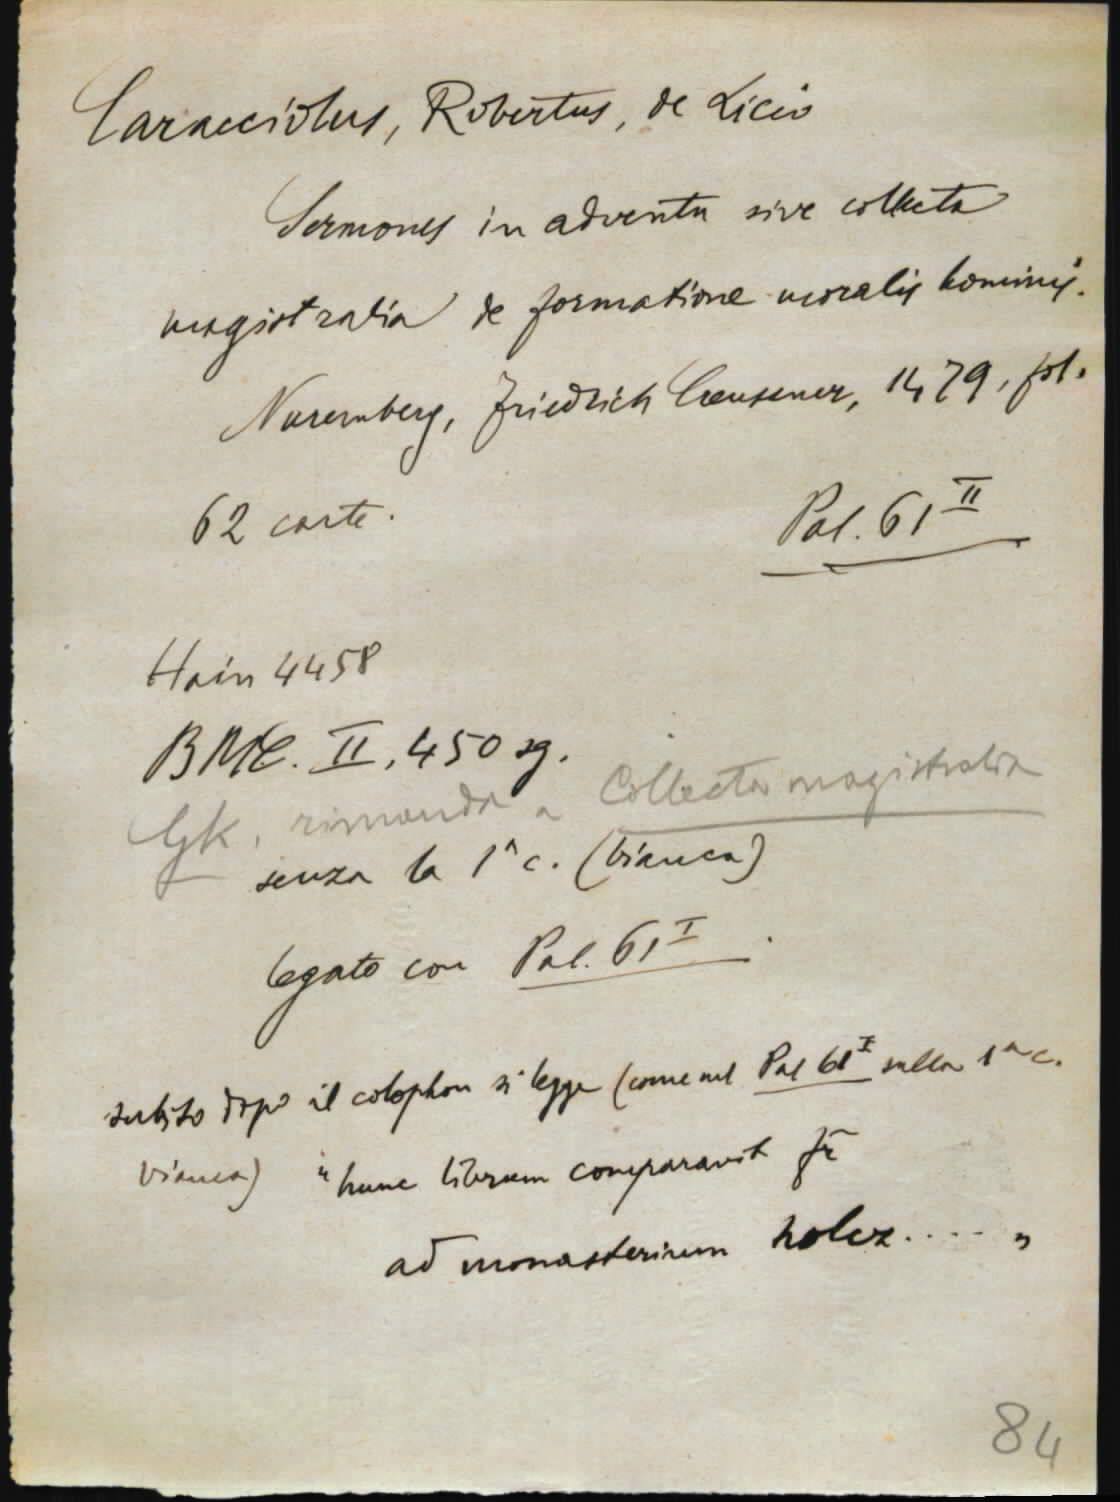 Caracciolus, Robertus, de Licio
Sermones in adventu sive collecta
magistralia de formatione moralis hominis.
Nuremberg, Friedrich Creussner, 1479, fol.
62 carte.
Pal. 61 II
Hain 4458
BMC. II, 450 sg.
GK, rimanda a Collecta magistralia
senza la 1ª c. (bianca)
legato con Pal. 61 I.
subito dopo il colophon si legge (come nel Pal 61 I sulla 1ª c.
bianca) "hunc librum comparavit fr̄
ad monasterium holcz.....„
84